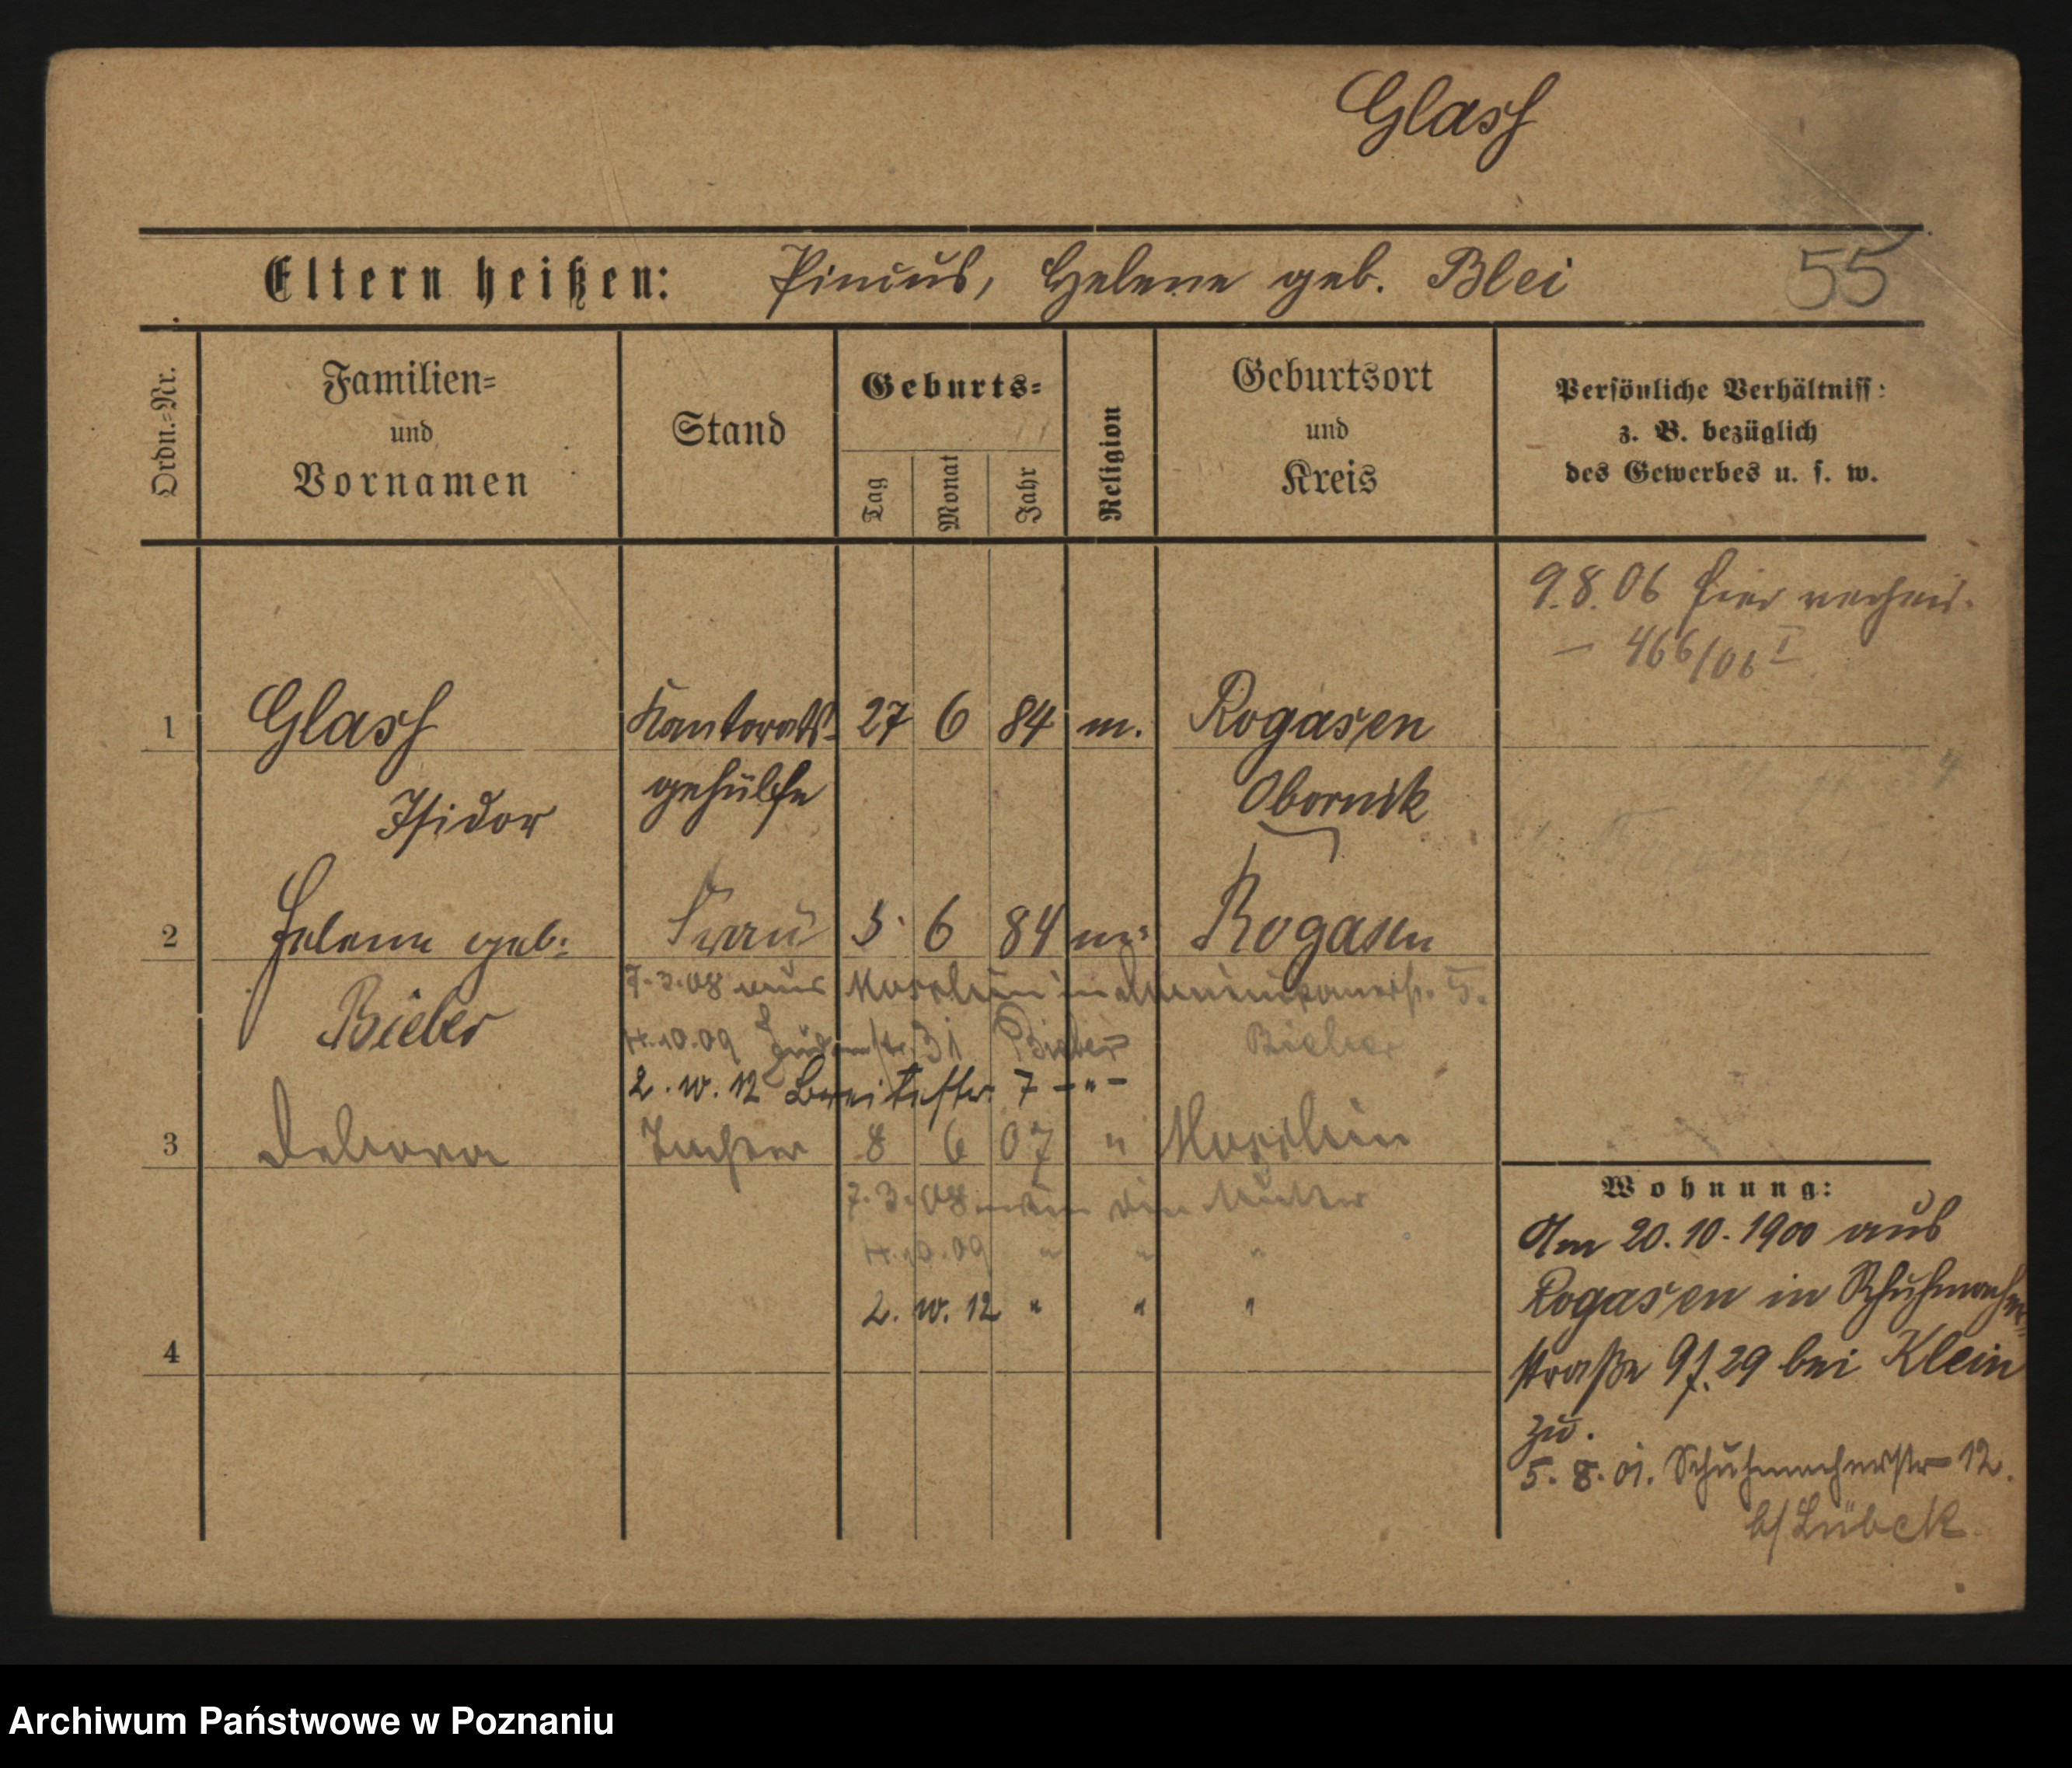 Glass
Eltern heißen: Pincus, Helene geb. Blei 55
Ordn.-Nr.
Familien- und Vornamen
Stand
Geburts-
Tag
Monat
Jahr
Religion
Geburtsort und Kreis
Persönliche Verhältniss:
z. B. bezüglich
des Gewerbes u. s. w.
9.8.06 hier verheir.
– 466/06 I
1 Glass Kantorats- 27 6 84 m. Rogasen
Isidor gehülfe Obornik
2 Helene geb: Frau 5. 6 84 m: Rogasen
7.3.08 aus in Dominikanerstr. 5.
Bieber
4.10.09 Judenstr. 31 Bieber Bieber
2. 10. 12 Breitestr. 7 – " –
3 Debora Tochter 8 6 07 "
7.3.08 wie die Mutter
4.10.09 " " "
2. 10. 12 " " "
4
Wohnung:
Am 20.10.1900 aus
Rogasen in Schuhmacher-
straße 9f. 29 bei Klein
zu.
5. 8. 01. Schuhmacherstr 12.
b/ Lübeck
Archiwum Państwowe w Poznaniu